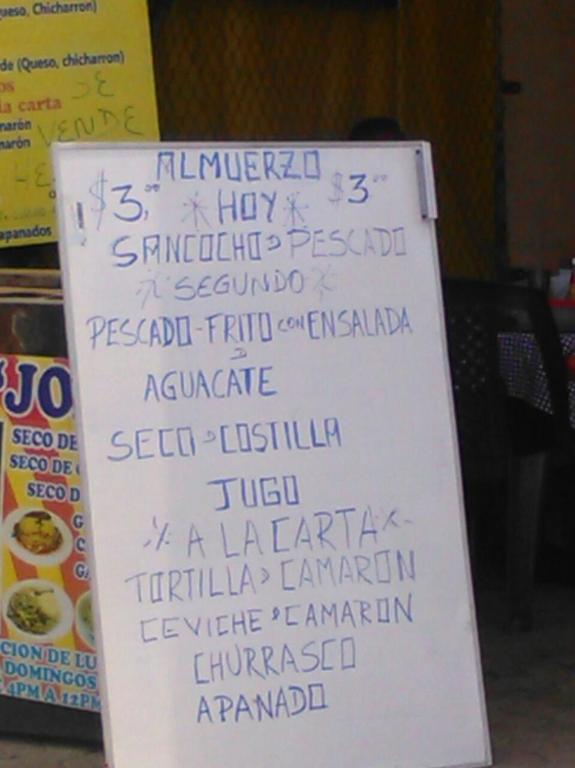 ueso, Chicharron)
de (Queso, chicharron)
os
la carta
marón
marón
SE
VENDE
apanados
ALMUERZO
$3,00 *HOY* $3 00
SANCOCHO D PESCADO
*SEGUNDO*
PESCADO-FRITO CON ENSALADA
D
AGUACATE
SECO D COSTILLA
JUGO
* A LA CARTA *
TORTILLA D CAMARON
CEVICHE D CAMARON
CHURRASCO
APANADO
JO
SECO DE
SECO DE
SECO D
G
C
GA
CION DE LU
DOMINGOS
4PM A 12PM